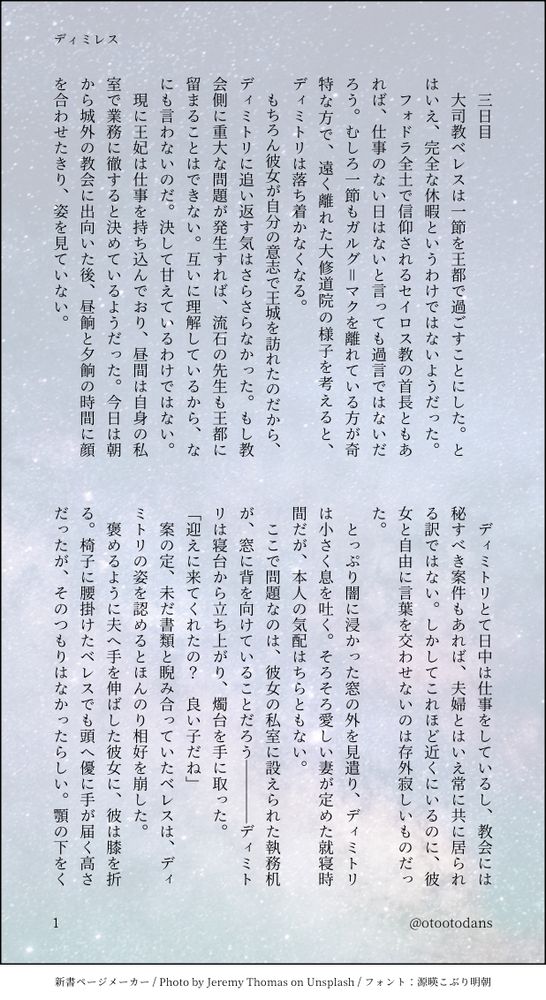 ディミレス
三日目
　大司教ベレスは一節を王都で過ごすことにした。と
はいえ、完全な休暇というわけではないようだった。
　フォドラ全土で信仰されるセイロス教の首長ともあ
れば、仕事のない日はないと言っても過言ではないだ
ろう。むしろ一節もガルグ＝マクを離れている方が奇
特な方で、遠く離れた大修道院の様子を考えると、
ディミトリは落ち着かなくなる。
　もちろん彼女が自分の意志で王城を訪れたのだから、
ディミトリに追い返す気はさらさらなかった。もし教
会側に重大な問題が発生すれば、流石の先生も王都に
留まることはできない。互いに理解しているから、な
にも言わないのだ。決して甘えているわけではない。
　現に王妃は仕事を持ち込んでおり、昼間は自身の私
室で業務に徹すると決めているようだった。今日は朝
から城外の教会に出向いた後、昼餉と夕餉の時間に顔
を合わせたきり、姿を見ていない。
　ディミトリとて日中は仕事をしているし、教会には
秘すべき案件もあれば、夫婦とはいえ常に共に居られ
る訳ではない。しかしてこれほど近くにいるのに、彼
女と自由に言葉を交わせないのは存外寂しいものだっ
た。
　とっぷり闇に浸かった窓の外を見遣り、ディミトリ
は小さく息を吐く。そろそろ愛しい妻が定めた就寝時
間だが、本人の気配はちらともない。
　ここで問題なのは、彼女の私室に設えられた執務机
が、窓に背を向けていることだろう――ディミト
リは寝台から立ち上がり、燭台を手に取った。
「迎えに来てくれたの？　良い子だね」
　案の定、未だ書類と睨み合っていたベレスは、ディ
ミトリの姿を認めるとほんのり相好を崩した。
　褒めるように夫へ手を伸ばした彼女に、彼は膝を折
る。椅子に腰掛けたベレスでも頭へ優に手が届く高さ
だったが、そのつもりはなかったらしい。顎の下をく
1
@otootodans
新書ページメーカー / Photo by Jeremy Thomas on Unsplash / フォント：源暎こぶり明朝